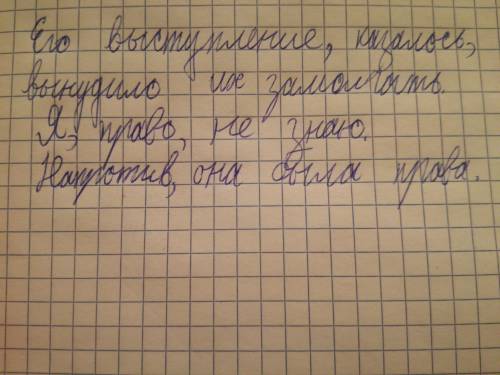 Его выступление, казалось,
вынудило их замолчать.
Я, право, не знаю.
Напротив, она была права.